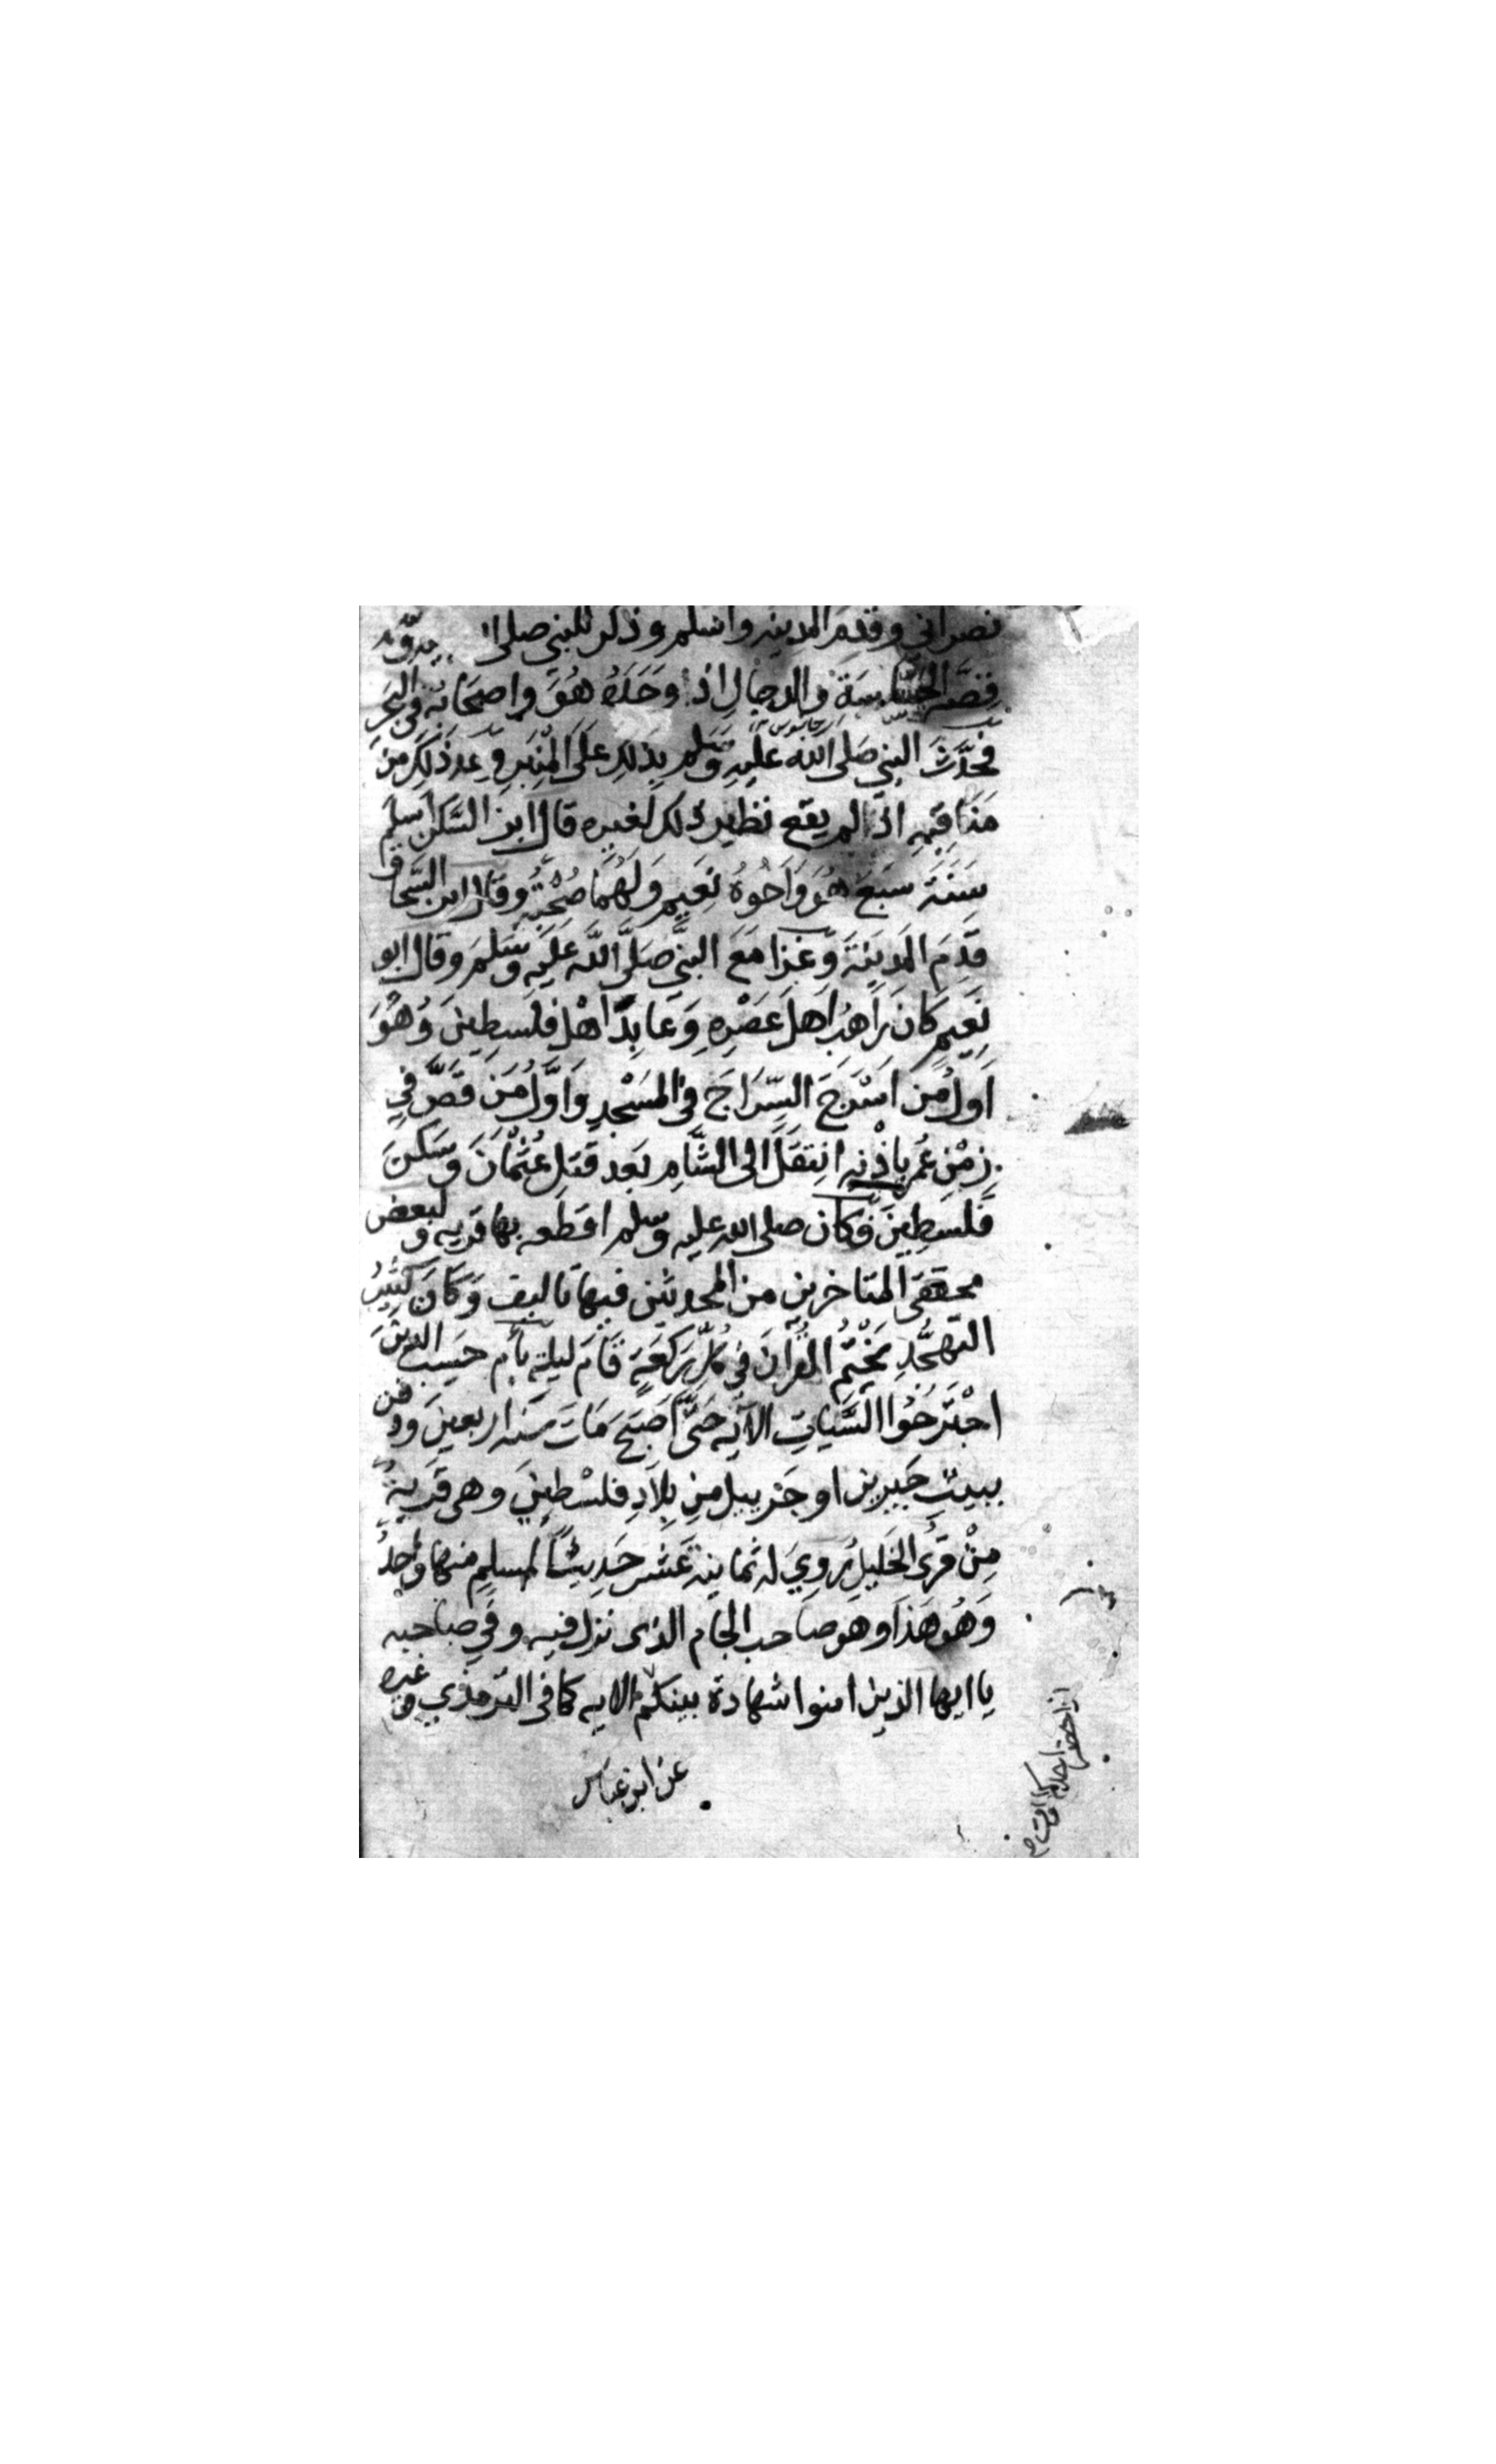 نصراني وقدم المدينه واسلم وذكر للنبي صلى
قصة الجساسة والدجال اذ وجده هو واصحابه في البحر
فحدث النبي صلى الله عليه وسلم بذلك على المنبر وعد ذلك من
مناقبه اذ لم يقع نظير ذلك لغيره قال ابن السكن اسلم
سنة سبع هو واخوه نعيم ولهما صحبة وقال ابن اسحاق
قدم المدينة وغزا مع النبي صلى الله عليه وسلم وقال ابو
نعيم كان راهب اهل عصره وعابد اهل فلسطين وهو
اول من اسرج السراج في المسجد واول من قص في
زمن عمر باذنه انتقل الى الشام بعد قتل عثمان وسكن
فلسطين وكان صلى الله عليه وسلم اقطعه بها قريه ولبعض
محققي المتاخرين من المحدثين فيها تاليف وكان كثير
التهجد يختم القران في كل ركعة قام ليلة بأم حسب الذين
اجترحوا السيات الآيه حتى اصبح مات سنه اربعين ودفن
ببيت جبرين او جبريل من بلاد فلسطين وهى قرية
من قرى الخليل روي له ثمانية عشر حديثا لمسلم منها واحد
وهو هذا وهو صاحب الجام الذى نزل فيه وفي صاحبه
يا ايها الذين امنوا شهادة بينكم الايه كما فى الترمذي وغيره
عن ابن عباس
اذا حضر احدكم